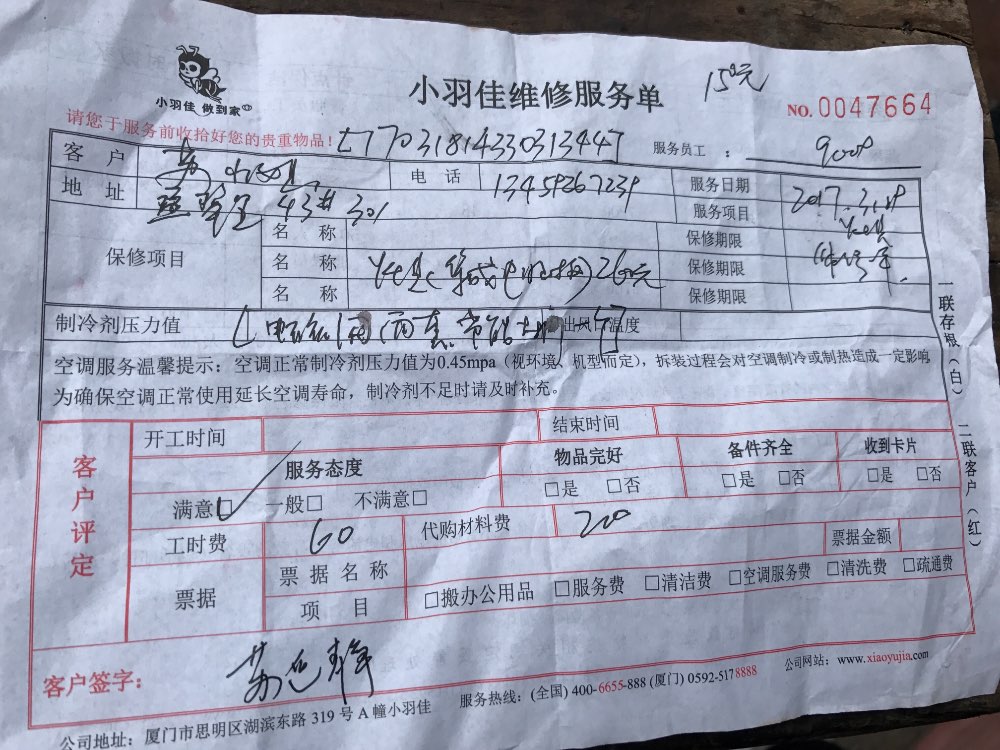 小羽佳 做到家
小羽佳维修服务单
150元
NO. 0047664
请您于服务前收拾好您的贵重物品！
服务员工：
客户 苏
电话 13459267239
服务日期 2017.3.18
地址 43# 301
服务项目
保修项目
名称
保修期限
名称 260元
保修期限
名称
保修期限
制冷剂压力值
出风口温度
空调服务温馨提示：空调正常制冷剂压力值为0.45mpa（视环境、机型而定），拆装过程会对空调制冷或制热造成一定影响
为确保空调正常使用延长空调寿命，制冷剂不足时请及时补充。
一联存根（白） 二联客户（红）
客户评定
开工时间
结束时间
服务态度
物品完好
备件齐全
收到卡片
满意□ 一般□ 不满意□
□是 □否
□是 □否
□是 □否
工时费 60
代购材料费 200
票据金额
票据
票据名称
项目
□搬办公用品 □服务费 □清洁费 □空调服务费 □清洗费 □疏通费
客户签字：
公司地址：厦门市思明区湖滨东路 319 号 A 幢小羽佳
服务热线：(全国) 400-6655-888 (厦门) 0592-5178888
公司网站：www.xiaoyujia.com